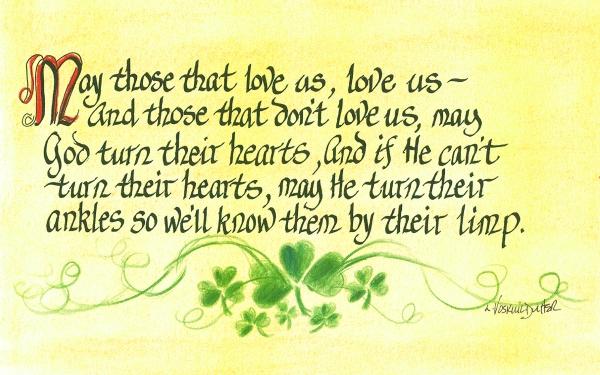 May those that love us, love us ~
And those that don't love us, may
God turn their hearts, And if He can't
turn their hearts, may He turn their
ankles so we'll know them by their limp.